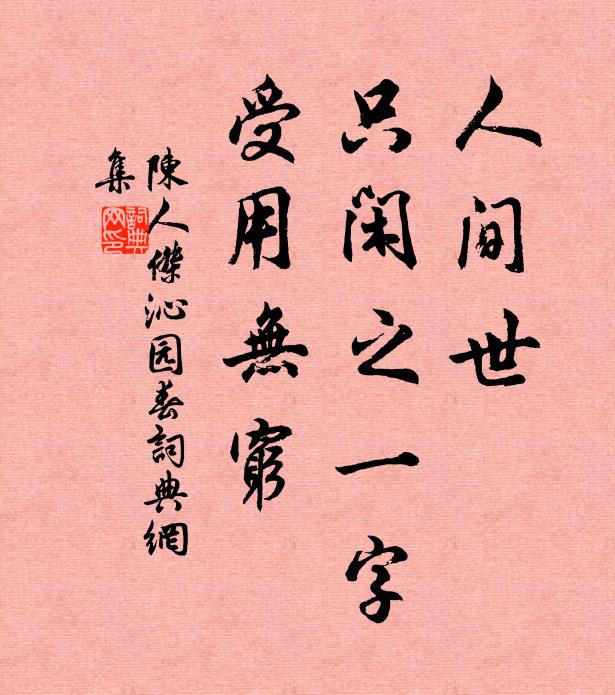 人间世
只闲之一字
受用無窮
陳人傑沁园春詞典網
集
詞典
网印